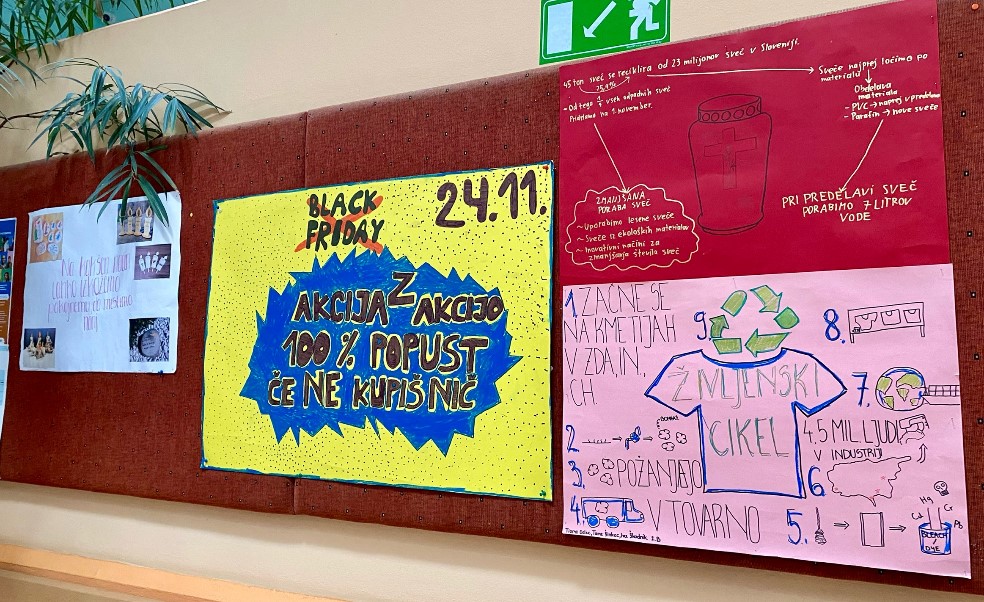 potrgneno ob mestavo
manj
BLACK
FRIDAY
24.11.
AKCIJA Z AKCIJO
100% POPUST
ČE NE KUPIŠ NIČ
45 ton sveč se reciklira od 23 milijonov sveč v Sloveniji.
- Od tega 1/3 vseh odpadnih sveč
Pridelamo na 1. november.
Sveče najprej ločimo po
materialu
Obdelava
materiala
- PVC → naprej v predelavo
- Parafin → nove sveče
ZMANJŠANA
PORABA SVEČ
~ Uporabimo lesene sveče
~ Sveče iz ekoloških materialov
~ Inovativni načini za
zmanjšanje števila sveč
PRI PREDELAVI SVEČ
PORABIMO 7 LITROV
VODE
1 ZAČNE SE
NA KMETIJAH
V ZDA, IN,
CH
2
3. POŽANJEJO
4. V TOVARNO
5.
Hg
Cd
Cr
Pb
BLEACH /
DYE
6
4,5 MIL. LJUDI
V INDUSTRIJI
7.
8.
9.
ŽIVLJENSKI
CIKEL